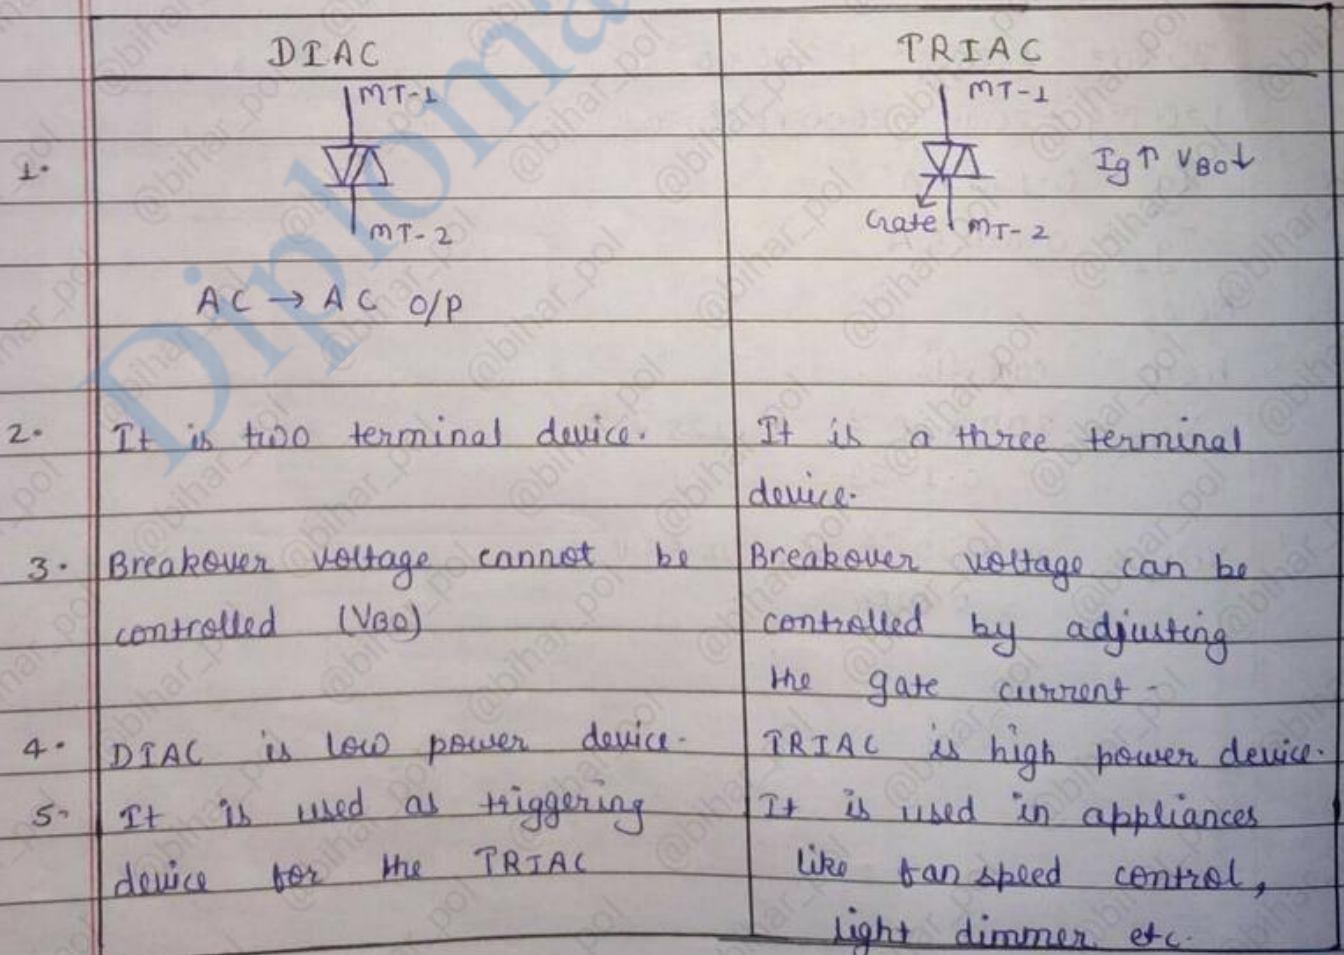 DIAC
TRIAC
1.
MT-1
MT-2
AC → AC O/P
MT-1
Ig↑ VBO↓
Gate
MT-2
2.
It is two terminal device.
It is a three terminal
device.
3.
Breakover voltage cannot be
controlled (VBO)
Breakover voltage can be
controlled by adjusting
the gate current -
4.
DIAC is low power device.
TRIAC is high power device.
5-
It is used as triggering
device for the TRIAC
It is used in appliances
like fan speed control,
light dimmer etc.
Diploma
@bihar_pol